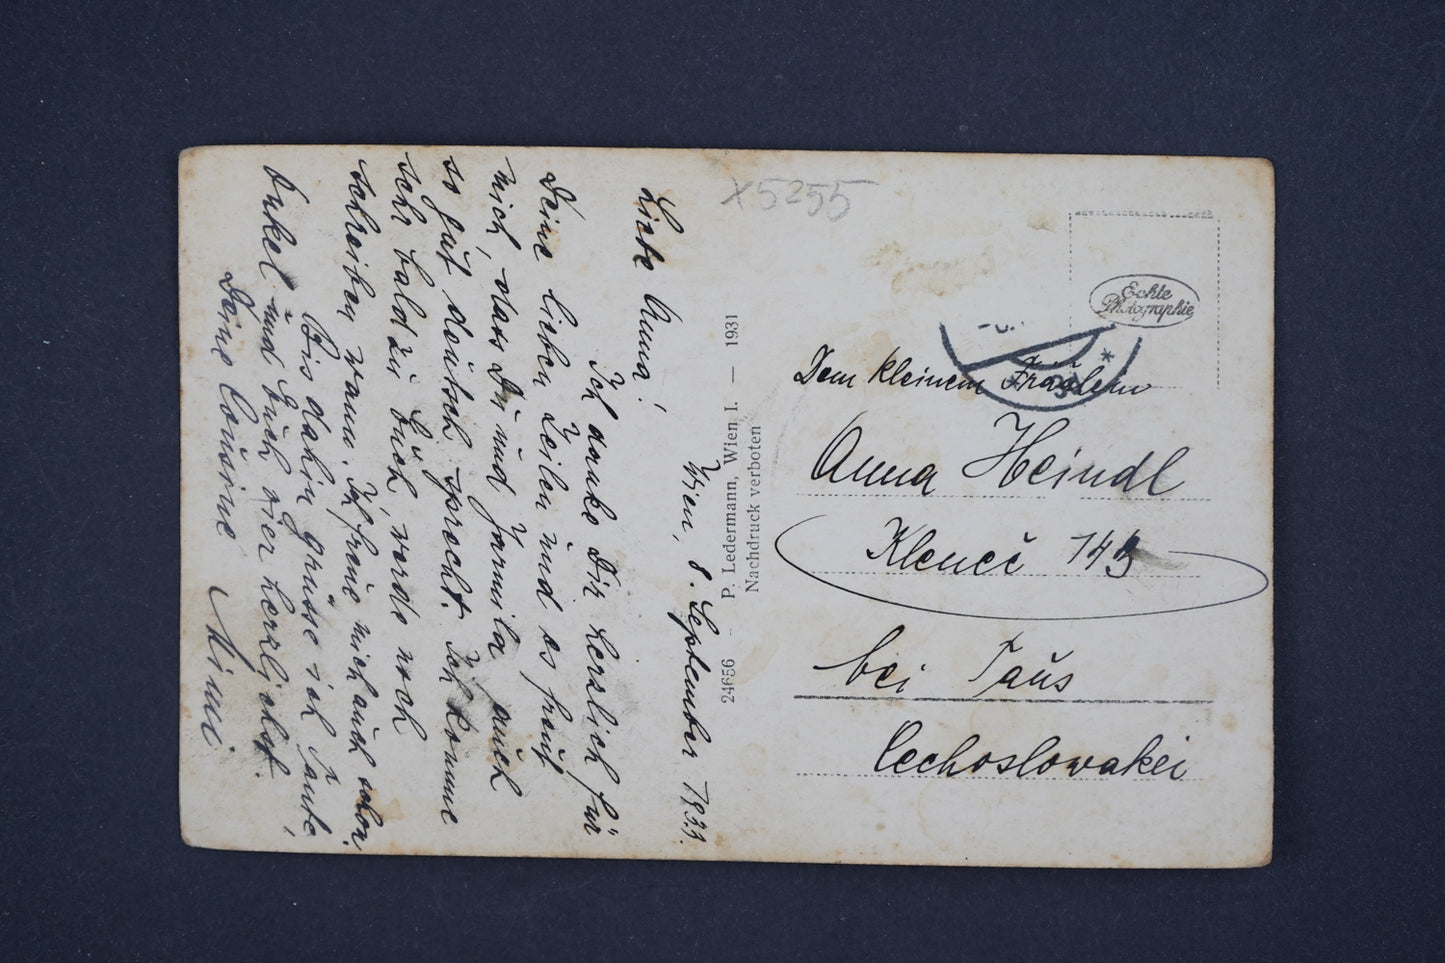 Wien, 8. September 1933.
Liebe Anna!
Ich danke Dir herzlich für
Deine lieben Zeilen und es freut
mich, dass Du und Jarmila auch
so gut deutsch sprecht. Ich komme
sehr bald zu Euch, werde noch
schreiben wann. Ich freue mich auch schon.
Bis dahin grüsse ich Tante,
Onkel und Euch vier herzlichst.
Deine Cousine Mimi
24656 - P. Ledermann, Wien I. — 1931
Nachdruck verboten
X5255
Echte
Photographie
Dem kleinem Fräulein
Anna Heindl
Kleneč 143
bei Taus
Čechoslowakei